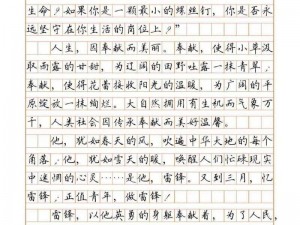 生命？如果你是一颗最小的螺丝钉，你是否永
远坚守在你生活的岗位上？”
人生，因奉献而美丽。奉献，使得小草汲
取雨露的甘甜，为辽阔的田野吐露一抹青翠；
奉献，使得花蕾接收阳光的温暖，为广阔的平
原绽放一抹绚烂。大自然拥有生机而气象万
千，人类社会因传承奉献而美好温馨。
他，犹如春天的风，吹遍中华大地的每个
角落；他，犹如雪天的暖，唤醒人们忙碌现实
中迷惘的心灵……他是，雷锋。又到三月，忆
雷锋；正值青年，做雷锋！
雷锋，以他英勇的身躯奉献着，为了人民，